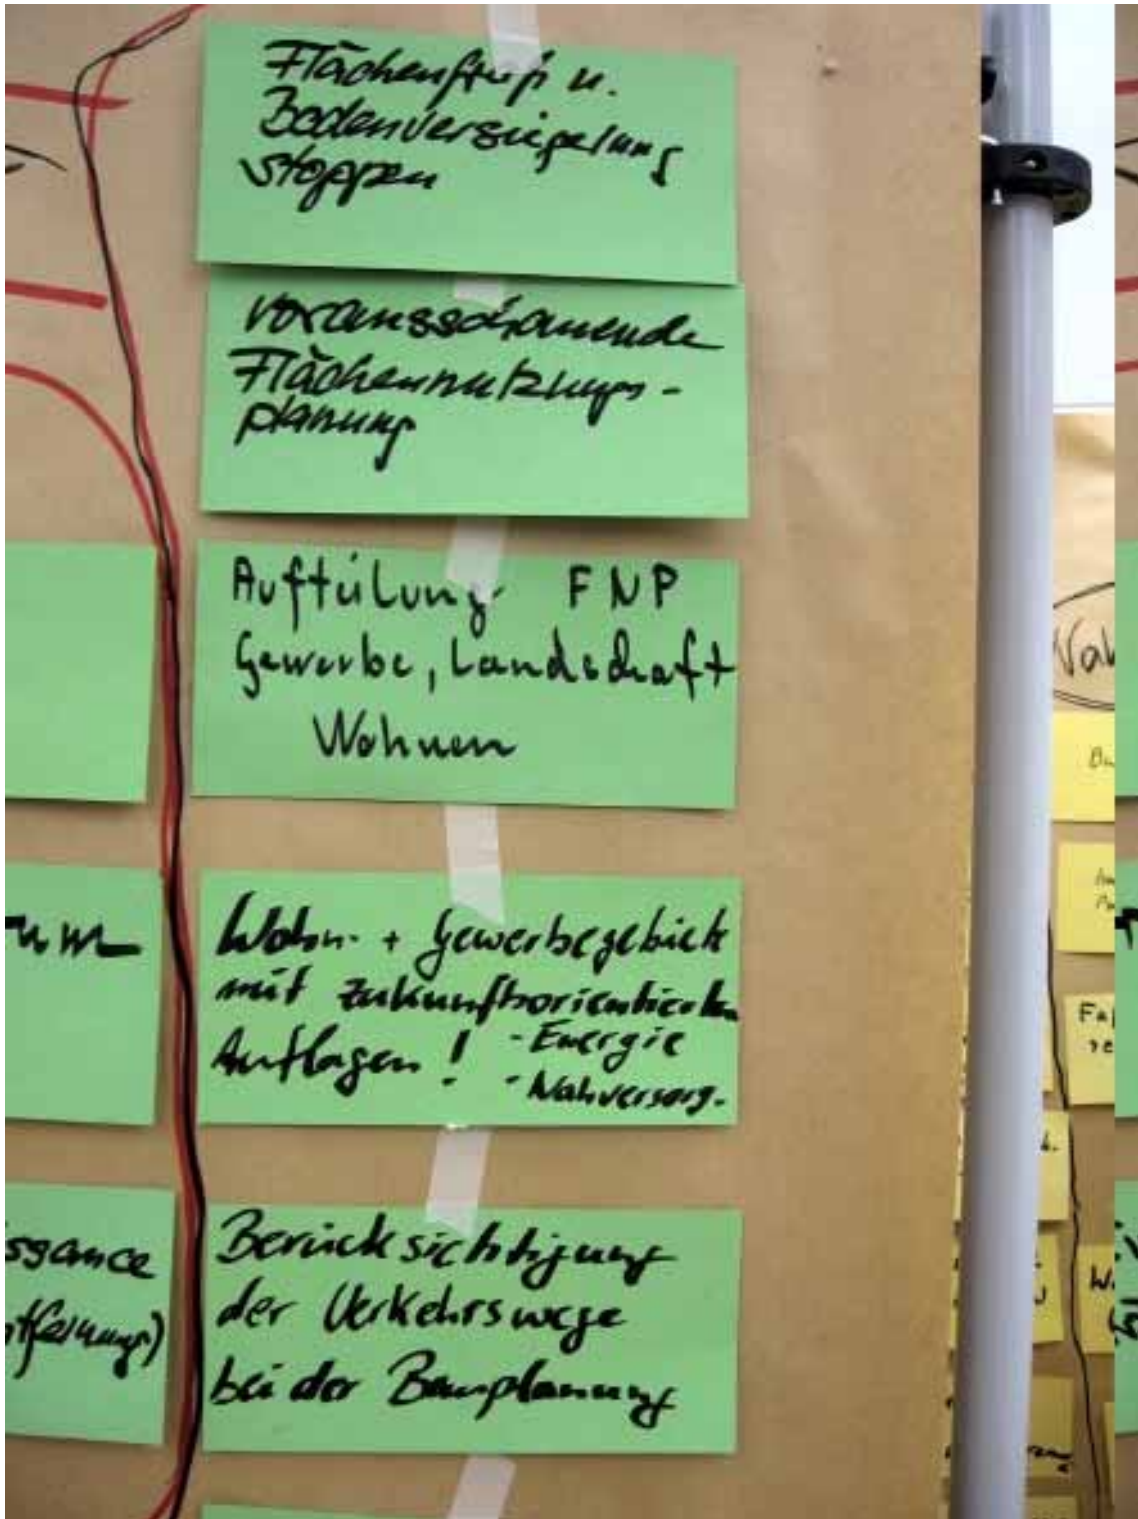 Flächenfraß u.
Bodenversiegelung
stoppen
vorausschauende
Flächennutzungs-
planung
Aufteilung FNP
Gewerbe, Landschaft
Wohnen
Wohn- + Gewerbegebiete
mit zukunftsorientierten
Auflagen! - Energie
- Nahversorg.
Berücksichtigung
der Verkehrswege
bei der Bauplanung
ssance
Nah